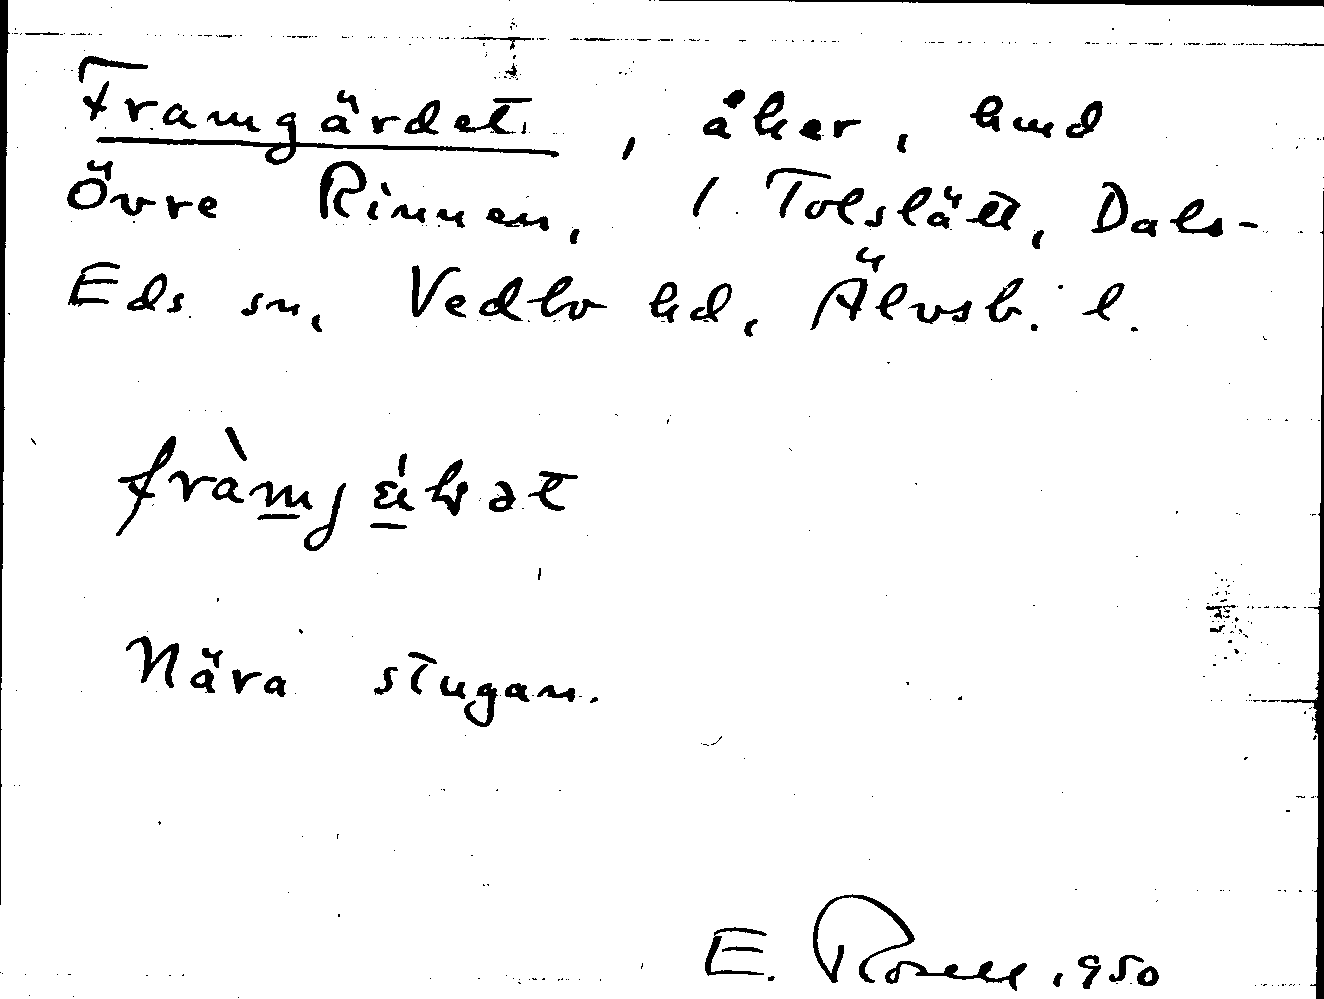 Framgärdet, åker, hmd
Övre Rinnen, 1 Tolslätt, Dals-
Eds sn, Vedbo hd, Älvsb. l.
Nära stugan.
E. Rosell 1950